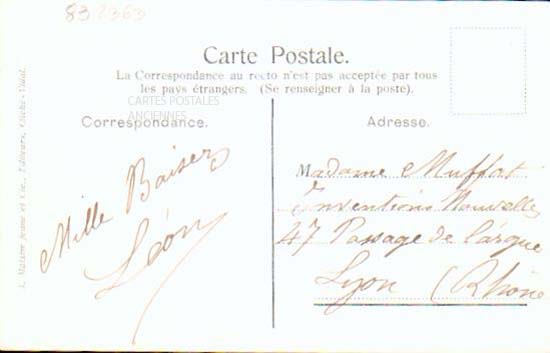 83 2363
Carte Postale.
La Correspondance au recto n'est pas acceptée par tous
les pays étrangers. (Se renseigner à la poste).
CARTES POSTALES
ANCIENNES
Correspondance.
Adresse.
Mille Baisers
Léon
Madame Muffat
Inventions Nouvelles
47 Passage de l'argue
Lyon (Rhône
Jeune et Cie., Editeurs,